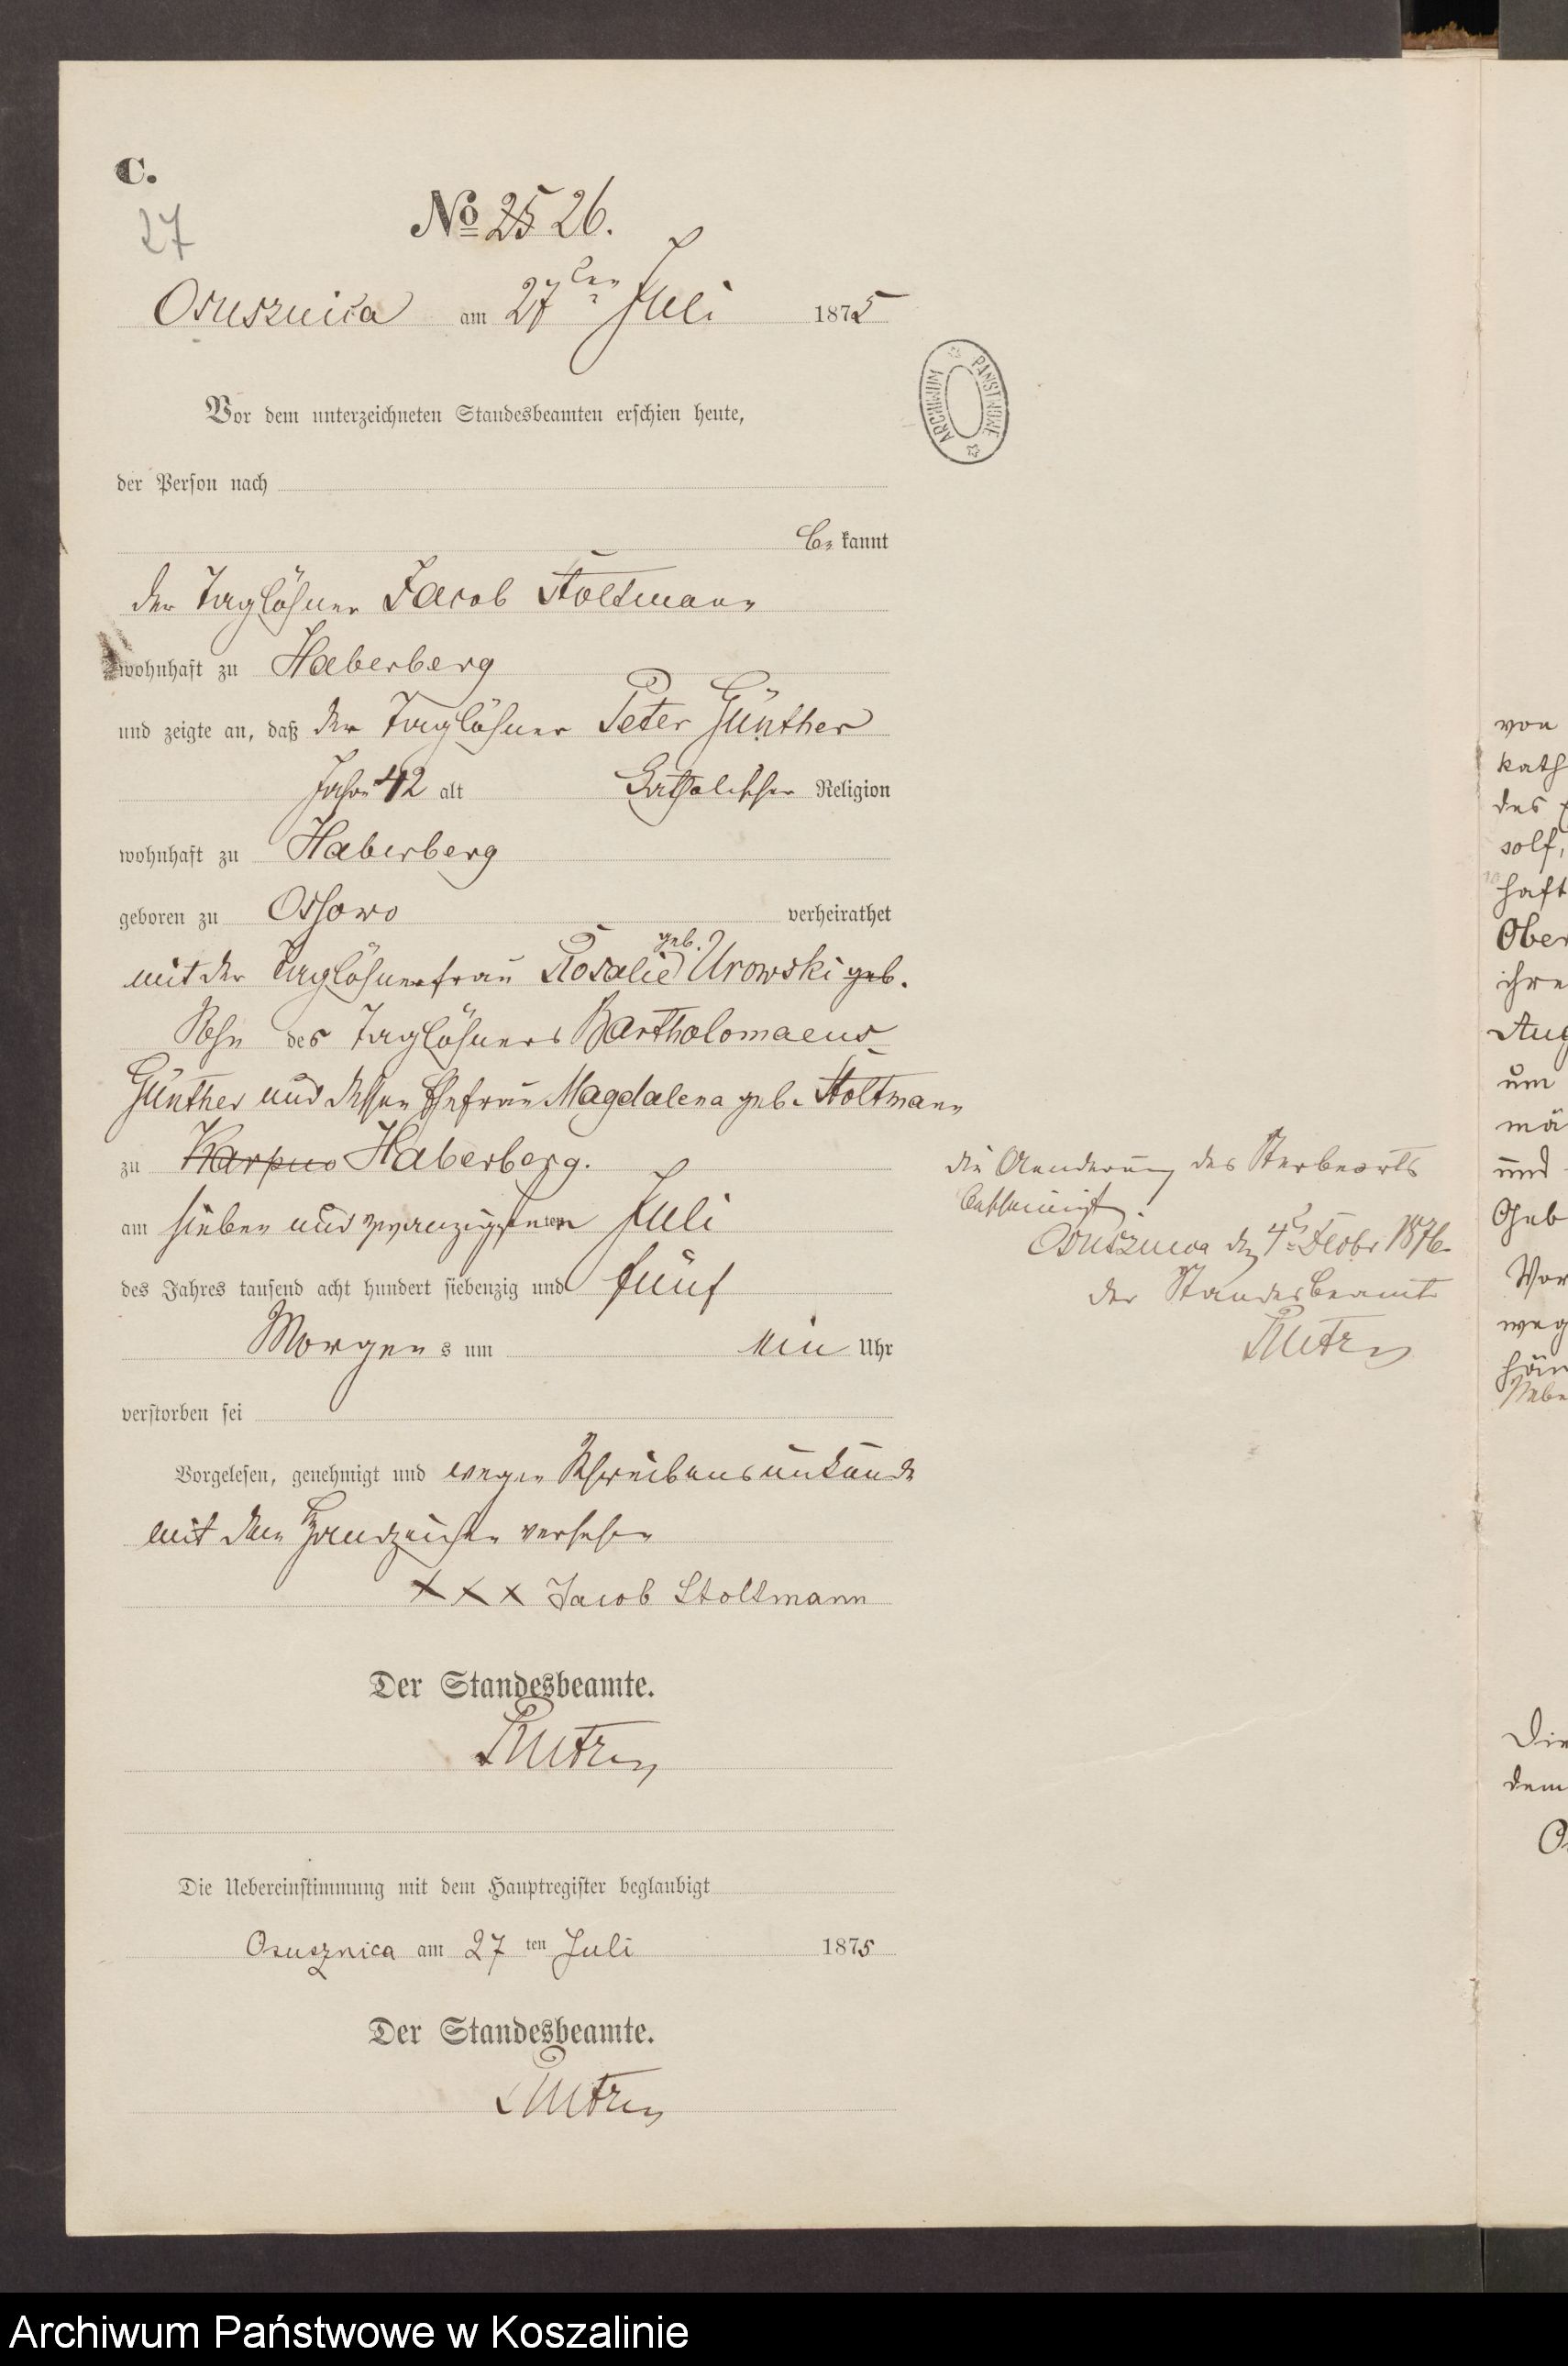 C.
27
No 25 26.
Osusznica am 27ten Juli 1875
Vor dem unterzeichneten Standesbeamten erschien heute,
der Person nach
be kannt
der Taglöhner Jacob Stoltmann
wohnhaft zu Haberberg
und zeigte an, daß der Taglöhner Peter Günther
Jahr 42 alt Katholischer Religion
wohnhaft zu Haberberg
geboren zu Ossowo verheirathet
geb.
mit der Taglöhnerfrau Rosalie Urowski geb.
Sohn des Taglöhners Bartholomaeus
Günther und dessen Ehefrau Magdalena geb. Stoltmann
zu Karpno Haberberg.
am sieben und zwanzigsten ten Juli
des Jahres tausend acht hundert siebenzig und fünf
Morgen s um Uhr
verstorben sei
Vorgelesen, genehmigt und wegen Schreibensunkunde
mit dem Handzeichen versehen
XXX Jacob Stoltmann
Der Standesbeamte.
Die Uebereinstimmung mit dem Hauptregister beglaubigt
Osusznica am 27 ten Juli 1875
Der Standesbeamte.
ARCHIWUM PAŃSTWOWE
die Aenderung des Sterbeorts
bescheinigt.
Osusznica den 4 1876
der Standesbeamte
von
kath
des
solf,
haft
Ober
ihre
Aug
um
mä
und
Geb
Vor
weg
Die
dem
O
Archiwum Państwowe w Koszalinie